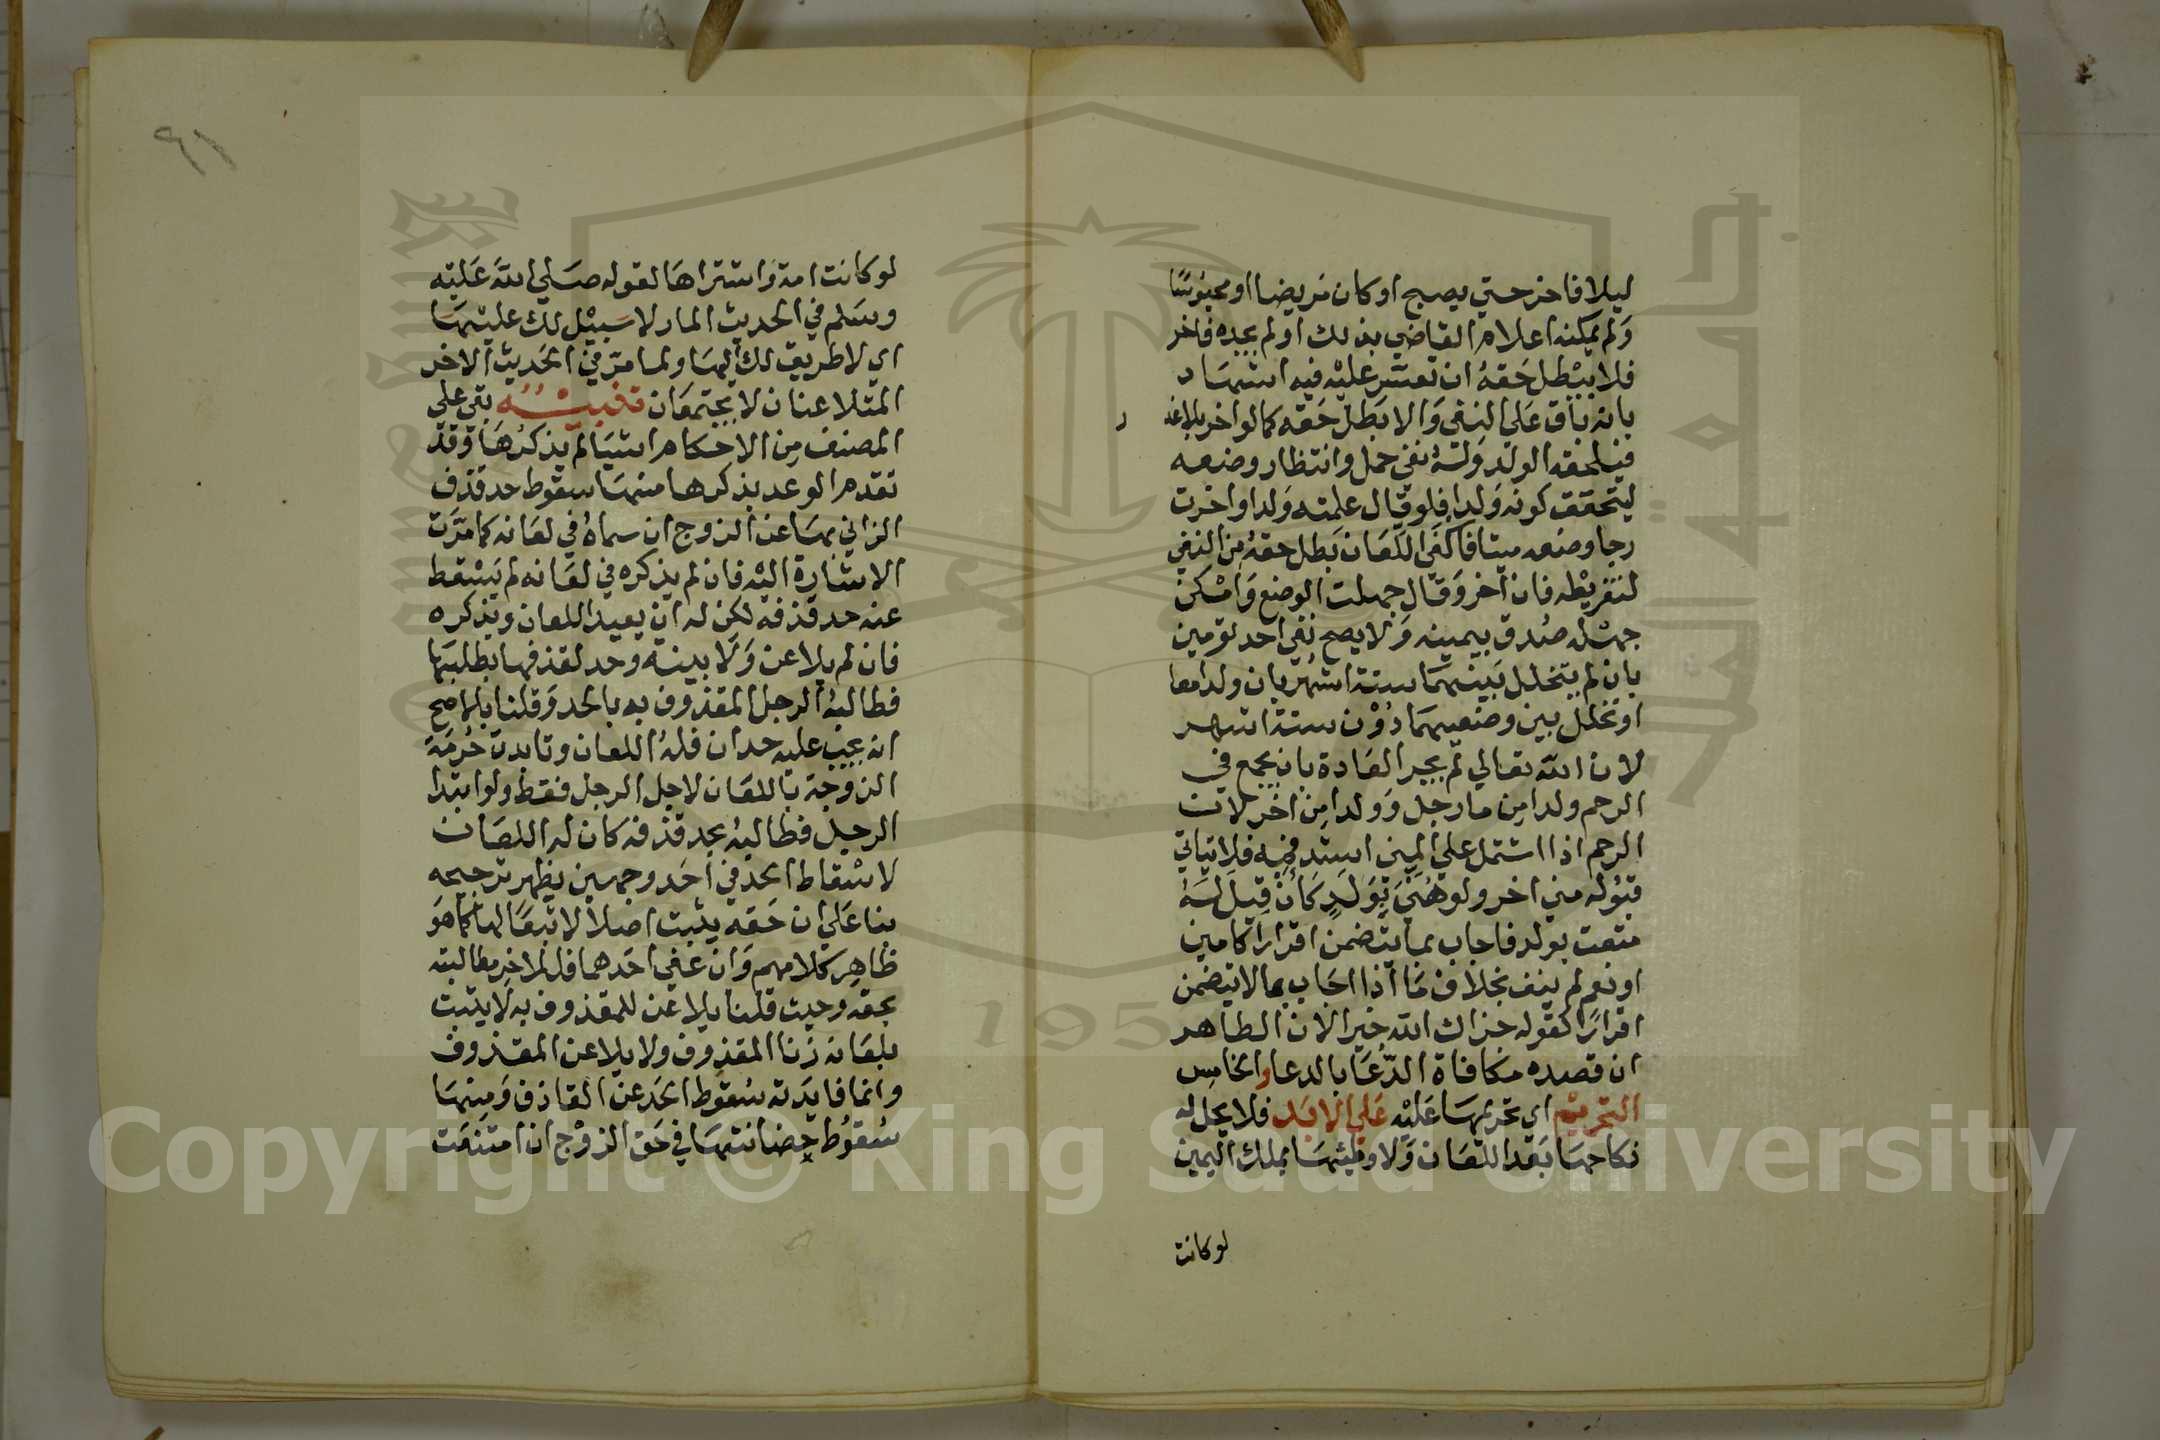 ليلا فاخر حتي يصبح او كان مريضا او محبوسًا
ولم يمكنه اعلام القاضي بذلك او لم يجده فاخر
فلا يبطل حقه ان تعسر عليه فيه اشهاد
بانه باق علي النفي والا بطل حقه كما لو اخر بلا عذ
ر
فيلحقه الولد وله نفي حمل وانتظار وضعه
ليتحقق كونه ولدا فلو قال علمته ولدا واخرت
رجا وضعه ميتا فاكفي اللعان بطل حقه من النفي
لتفريطه فان اخر وقال جهلت الوضع وامكن
جهله صدق بيمينه ولا يصح نفي احد تومين
بان لم يتخلل بينهما ستة اشهر بان ولدا معا
او تخلل بين وضعيهما دون ستة اشهر
لان الله تعالي لم يجر العادة بان يجمع في
الرحم ولدا من ما رجل وولدا من اخر لان
الرحم اذا اشتمل علي المني استد فمه فلا يتاتي
قبوله مني اخر ولو هني بولد كان قيل له
متعت بولد فاجاب بما يتضمن اقرارا كامين
او نعم لم ينف بخلاف ما اذا اجاب بما لا يتضمن
اقرارًا كقوله جزاك الله خيرا لان الظاهر
ان قصده مكافاة الدعا بالدعا والخامس
التحريم اي تحريمها عليه علي الابد فلا يحل له
نكاحها بعد اللعان ولا وطيها بملك اليمين
لو كانت
٩١
لو كانت امة واشتراها لقوله صلي الله عليه
وسلم في الحديث المار لا سبيل لك عليها
اي لا طريق لك اليها ولما مر في الحديث الاخر
المتلاعنان لا يجتمعان تنبيه بقي علي
المصنف من الاحكام اشيا لم يذكرها وقد
تقدم الوعد بذكرها منها سقوط حد قذف
الزاني بها عن الزوج ان سماه في لعانه كما مرت
الاشارة اليه فان لم يذكره في لعانه لم يسقط
عنه حد قذفه لكن له ان يعيد اللعان ويذكره
فان لم يلاعن ولا بينة وحد لقذفها بطلبها
فطالبه الرجل المقذوف به بالحد وقلنا بالاصح
انه يجب عليه حدان فله اللعان وتابدت حرمة
الزوجة باللعان لاجل الرجل فقط ولو ابتدا
الرجل فطالبه بحد قذفه كان له اللعان
لاسقاط الحد في احد وجهين يظهر ترجيحه
بنا علي ان حقه يثبت اصلا لا تبعا لها كما هو
ظاهر كلامهم وان عفي احدهما فللاخر مطالبته
بحقه وحيث قلنا يلاعن للمقذوف به لا يثبت
بلعانه زنا المقذوف ولا يلاعن المقذوف
وانما فايدته سقوط الحد عن القاذف ومنها
سقوط حضانتها في حق الزوج ان امتنعت
Copyright © King Saud University
195